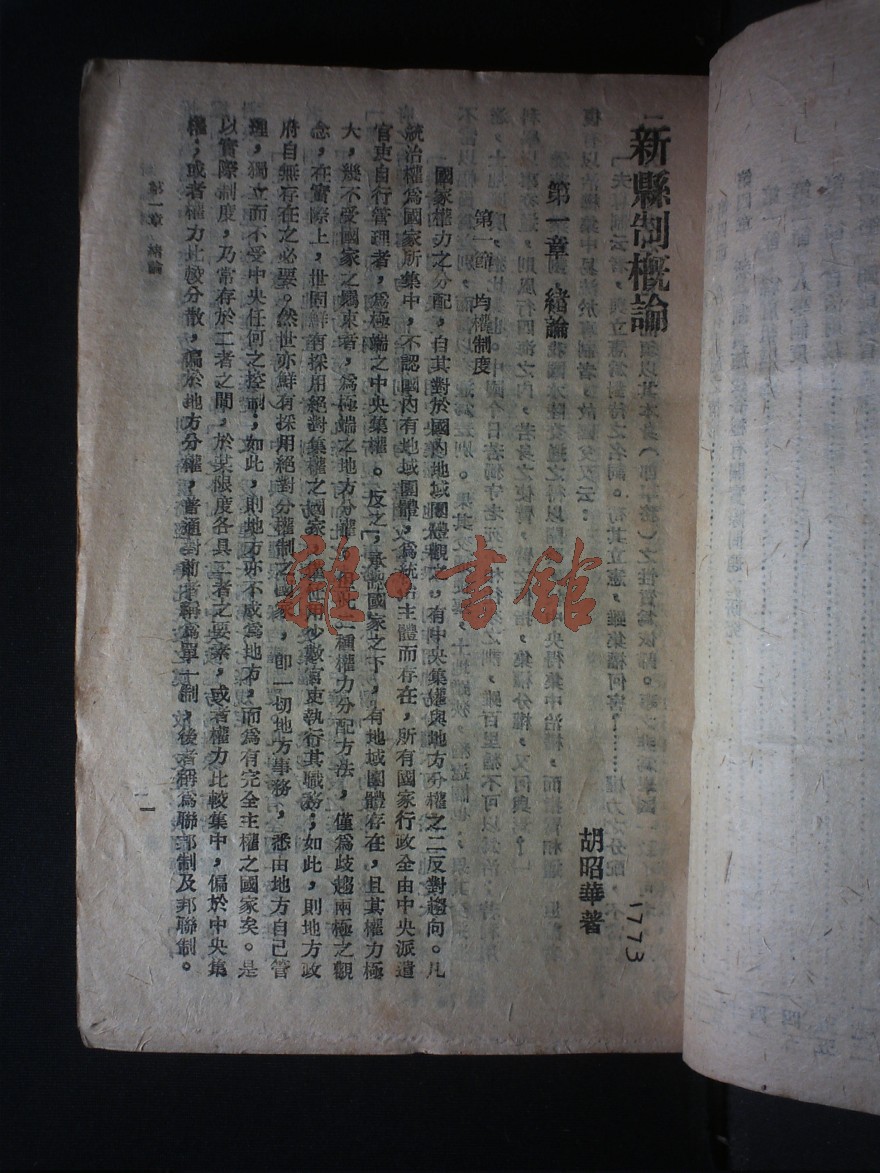 新縣制概論
胡昭華著
1773
第一章　緒論
第一節　均權制度
國家權力之分配，自其對於國內地域團體觀之，有中央集權與地方分權之二反對趨向。凡
統治權爲國家所集中，不認國內有地域團體，爲統治主體而存在，所有國家行政全由中央派遣
官吏自行管理者，爲極端之中央集權。反之，承認國家之下，有地域團體存在，且其權力極
大，幾不受國家之覊束者，爲極端之地方分權，但此一種權力分配方法，僅爲歧趨兩極之觀
念，在實際上，世間鮮有採用絕對集權之國家，僅任用少數官吏執行其職務；如此，則地方政
府自無存在之必要。然世亦鮮有採用絕對分權制之國家，卽一切地方事務，悉由地方自己管
理，獨立而不受中央任何之控制；如此，則地方亦不成爲地方，而爲有完全主權之國家矣。是
以實際制度，乃常存於二者之間，於某限度各具二者之要素，或者權力比較集中，偏於中央集
權；或者權力比較分散，偏於地方分權，普通對前者稱爲單一制，後者稱爲聯邦制及邦聯制。
第一章　緒論
一
雜·書館